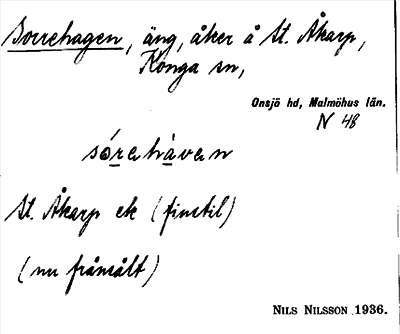 Borrehagen, äng, åker å St. Åkarp,
Konga sn,
Onsjö hd, Malmöhus län.
N 48
sårahavan
St. Åkarp ek (finstil)
(nu frånsålt)
NILS NILSSON 1936.